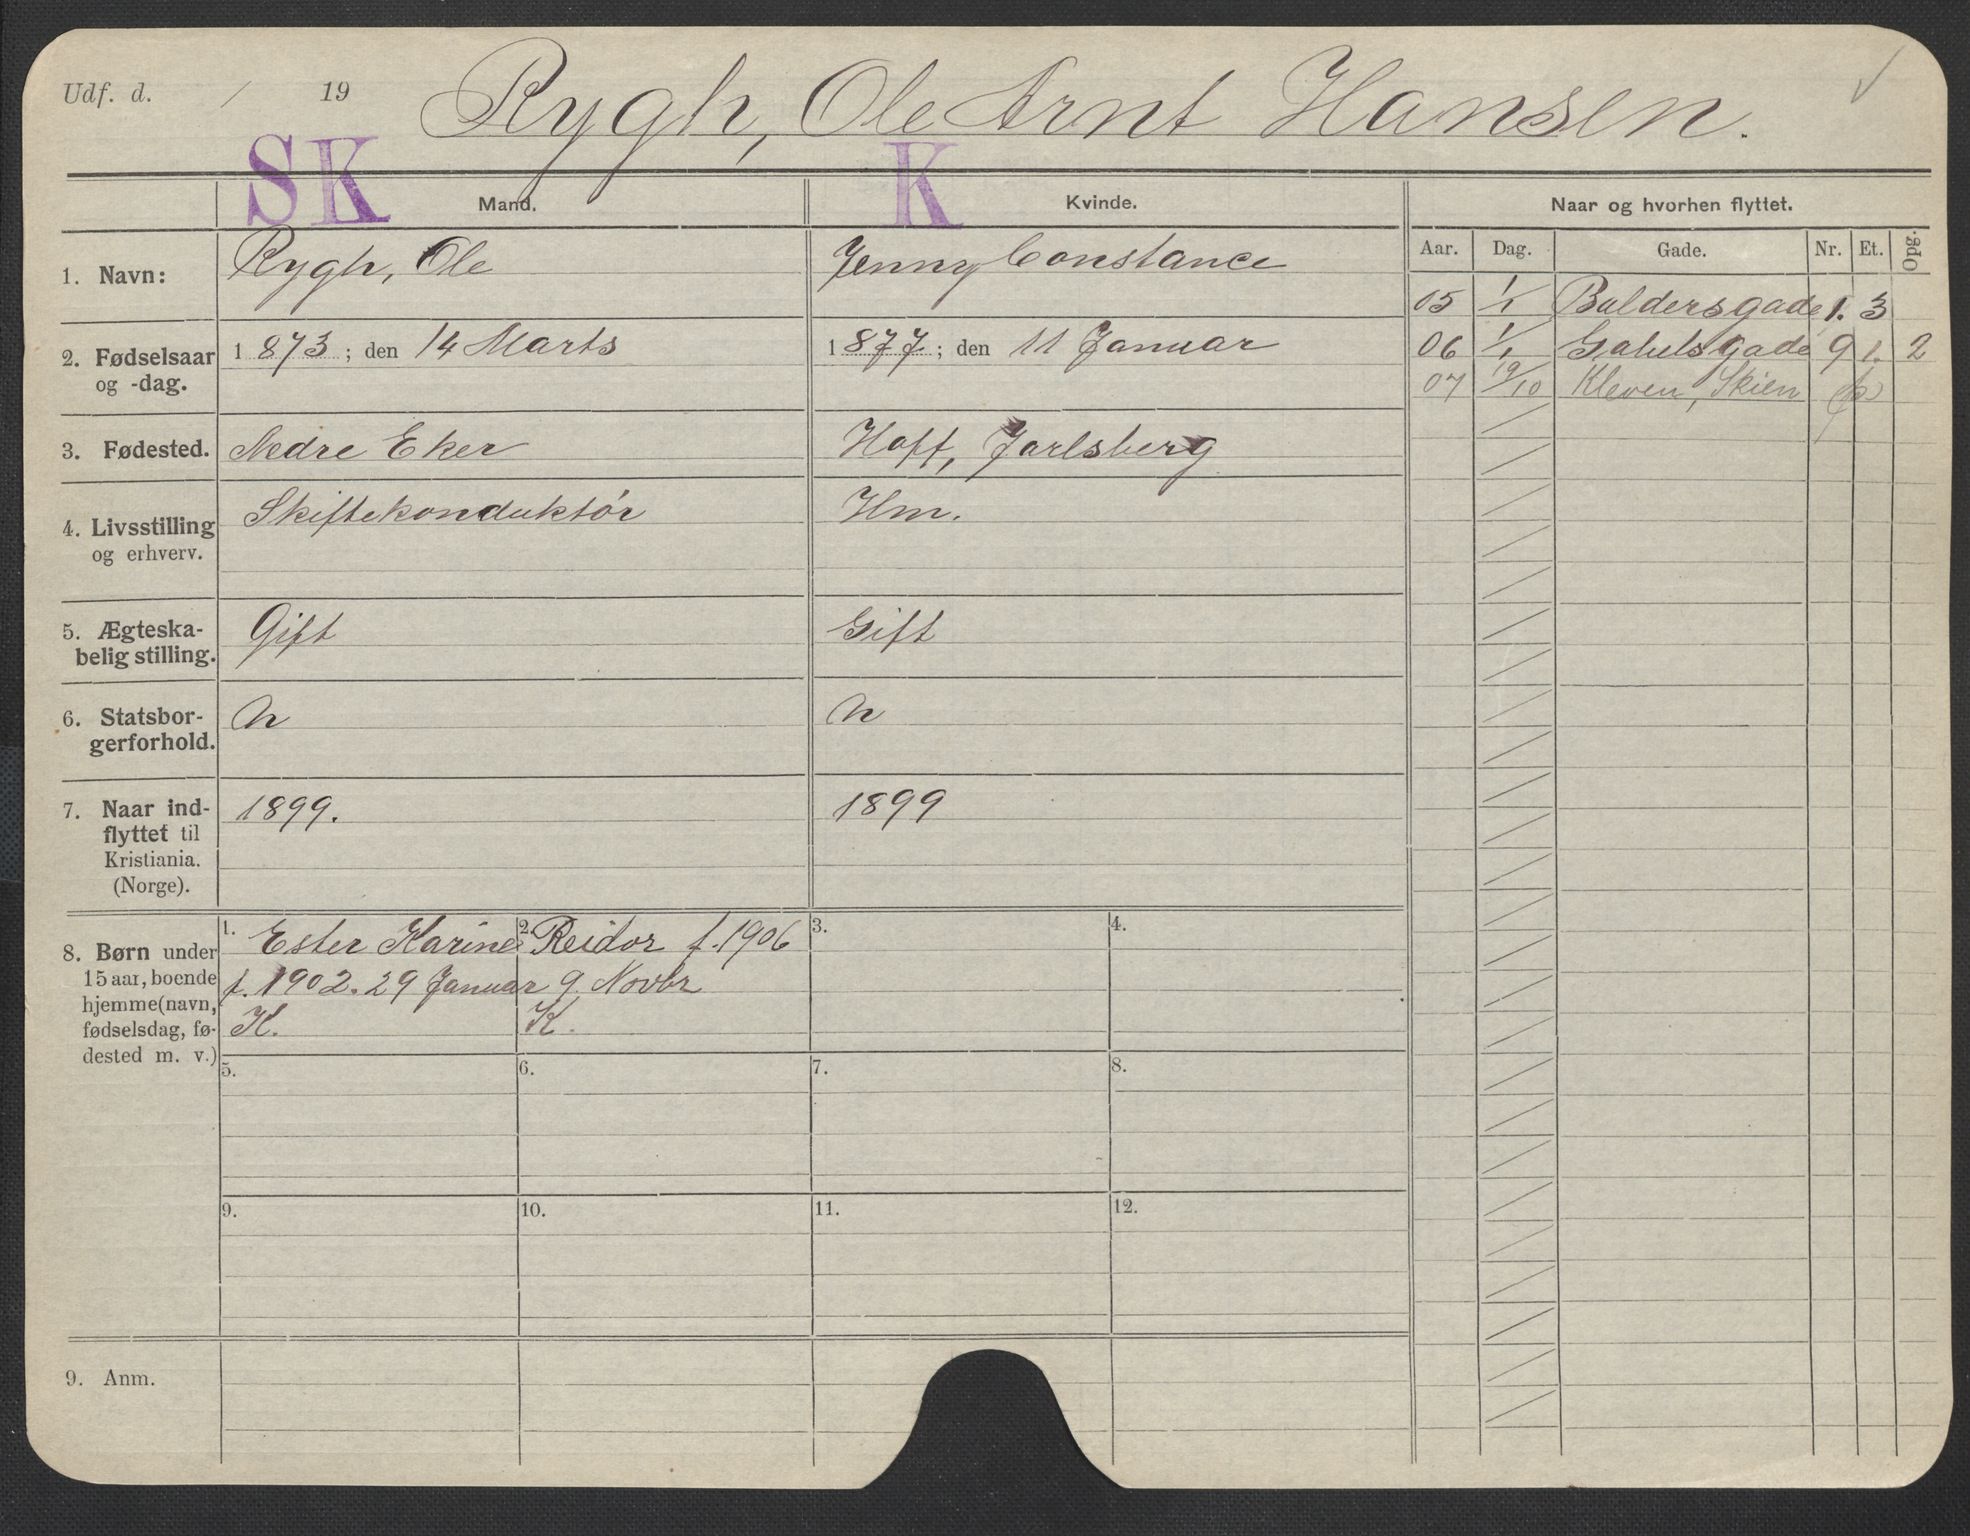 Udf. d. / 19 Rygh, Ole Arnt Hansen.
SK K
Mand. Kvinde. Naar og hvorhen flyttet.
Aar. Dag. Gade. Nr. Et. Opg.
1. Navn: Rygh, Ole Jenny Constance
05 1/1 Baldersgade 1. 3
2. Fødselsaar og -dag. 1873; den 14 Marts 1877; den 11 Januar
06 1/1 Gabelsgade 9 1. 2
07 19/10 Kleven, Skien
3. Fødested. Nedre Eker Hoff, Jarlsberg
4. Livsstilling og erhverv. Skiftekonduktör Hm.
5. Ægteska-
belig stilling. Gift Gift
6. Statsbor-
gerforhold. n n
7. Naar ind-
flyttet til
Kristiania.
(Norge). 1899. 1899
8. Børn under
15 aar, boende
hjemme (navn,
fødselsdag, fø-
dested m. v.)
1. Ester Karine
f. 1902. 29 Januar
K.
2. Reidor f. 1906
9 Novbr
K.
3. 4.
5. 6. 7. 8.
9. 10. 11. 12.
9. Anm.